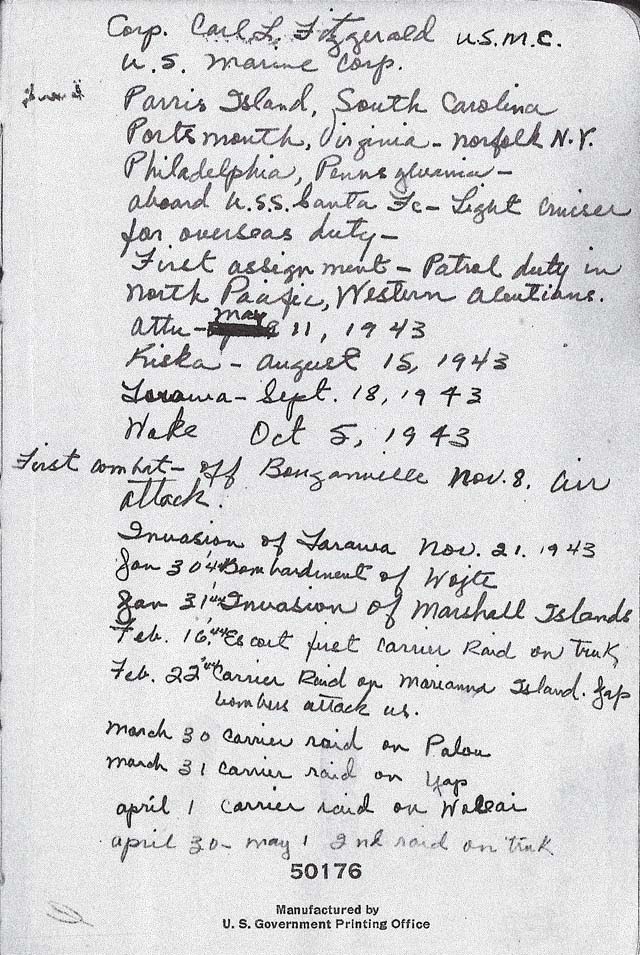 Corp. Carl L. Fitzgerald U.S.M.C.
U.S. Marine Corp.
Parris Island, South Carolina
Portsmouth, Virginia - Norfolk N.Y.
Philadelphia, Pennsylvania -
aboard U.S.S. Santa Fe - Light Cruiser
for overseas duty -
First assignment - Patrol duty in
North Pacific, Western Aleutians.
Attu - May 11, 1943
Kiska - August 15, 1943
Tarawa - Sept. 18, 1943
Wake Oct 5, 1943
First combat - off Bouganville Nov. 8. Air
attack.
Invasion of Tarawa Nov. 21. 1943
Jan 30 '44 Bombardment of Wojte
Jan 31 '44 Invasion of Marshall Islands
Feb. 16, '44 Escort first Carrier Raid on Truk
Feb. 22 '44 Carrier Raid on Marianna Island. Jap
bombers attack us.
March 30 carrier raid on Palau
March 31 carrier raid on Yap
april 1 carrier raid on Woleai
april 30 - May 1 2nd raid on Truk
50176
Manufactured by
U. S. Government Printing Office